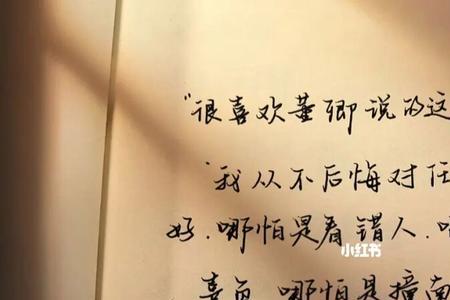 “很喜欢董卿说的这
“我从不后悔对任
好.哪怕是看错人.哪
小红书
辜负.哪怕是撞南